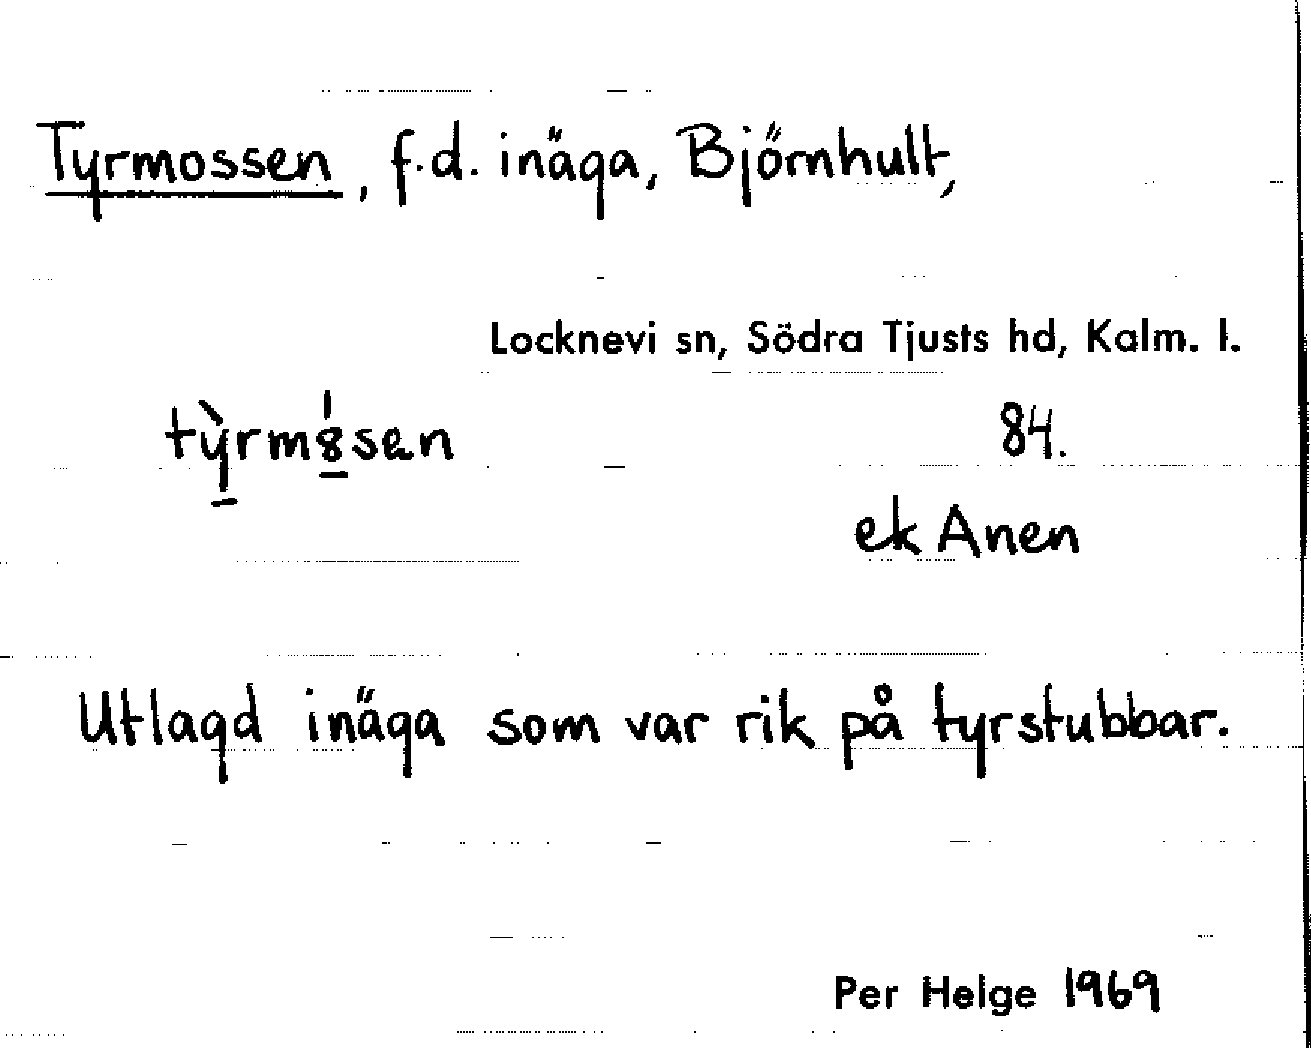 Tyrmossen, f.d. inäga, Björnhult,
Locknevi sn, Södra Tjusts hd, Kalm. l.
tỳ̠rm8̠̍sen
84.
ek Anen
Utlagd inäga som var rik på tyrstubbar.
Per Helge 1969